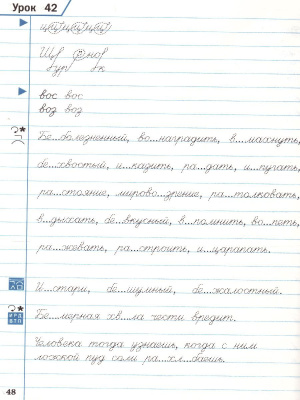 Урок 42
вос вос
воз воз
Бе...болезненный, во...наградить, в...махнуть,
бе...хвостый, и...казить, ра...дать, и...пугать,
ра...стояние, мирово...зрение, ра...толковать,
в...дыхать, бе...вкусный, в...помнить, во...петь,
ра...жевать, ра...строить, и...царапать.
И...стари, бе...шумный, бе...жалостный.
Бе...мерная хв...ла чести вредит.
Человека тогда узнаешь, когда с ним
ложкой пуд соли ра...хл...баешь.
48